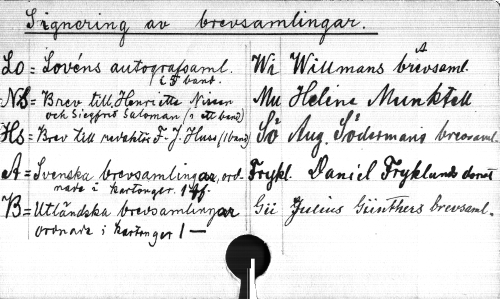 Signering av brevsamlingar.
Lo = Lovéns autografsaml.
i 5 band.
NS = Brev till Henriette Nissen
och Siegfrid Saloman (i ett band)
Hs = Brev till redaktör F. J. Huss (1 band)
A = Svenska brevsamlingar, ord-
nade i kartonger. 1 ff.
B = Utländska brevsamlingar
ordnade i kartonger 1 —
Wi Willmans brevsaml.
Mu Helena Munktell
Sö Aug. Södermans brevsaml.
Frykl. Daniel Fryklunds donat
Gü Julius Günthers brevsaml.